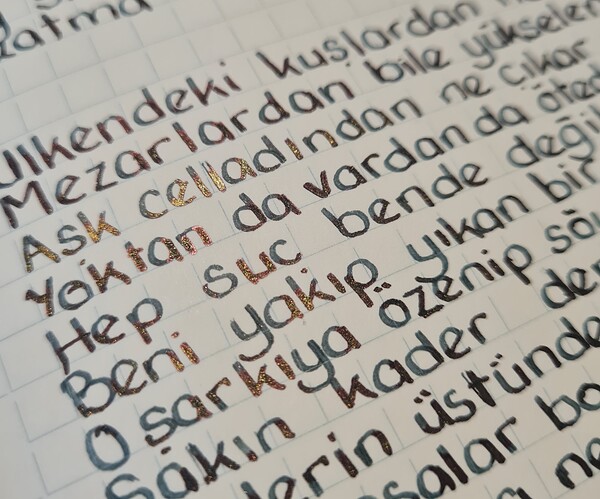 zatma
Ülkendeki kuşlardan
Mezarlardan bile yükselen
Ask celladından ne çıkar
Yoktan da vardan da öted
Hep suc bende değil
Beni yakıp yıkan bir
O sarkıya özenip söy
Sakın kader de
lerin üstünde
salar bo
a ne